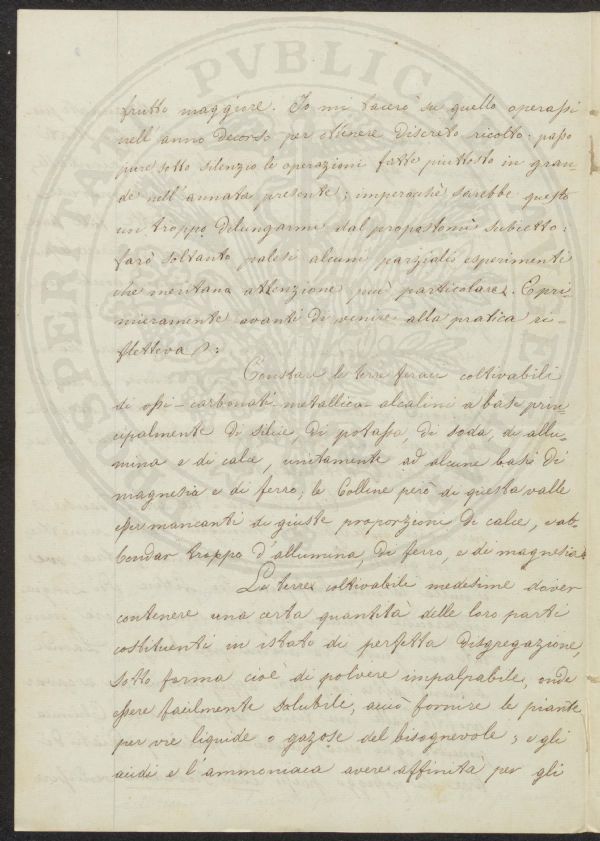 frutto maggiore. Io mi tacerò su quello operassi
nell'anno decorso per ottenere discreto ricolto: passo
pure sotto silenzio le operazioni fatte piuttosto in gran-
de nell'annata presente; imperocchè sarebbe questo
un troppo dilungarmi dal propostomi subietto:
farò soltanto palesi alcuni parziali esperimenti
che meritano attenzione più particolare. E pri-
mieramente avanti di venire alla pratica ri-
flettevasi:
Constare le terre feraci coltivabili
di ossi-carbonati-metallico-alcalini a base prin-
cipalmente di silice, di potassa, di soda, di allu-
mina e di calce, unitamente ad alcune basi di
magnesia e di ferro; le Colline però di questa valle
esser mancanti di giuste proporzioni di calce, e ab-
bondar troppo d'allumina, di ferro, e di magnesia.
Le terre coltivabili medesime dover
contenere una certa quantità delle loro parti
costituenti in istato di perfetta disgregazione,
sotto forma cioè di polvere impalpabile, onde
essere facilmente solubili, acciò fornire le piante
per vie liquide o gazose del bisognevole; e gli
acidi e l'ammoniaca avere affinità per gli